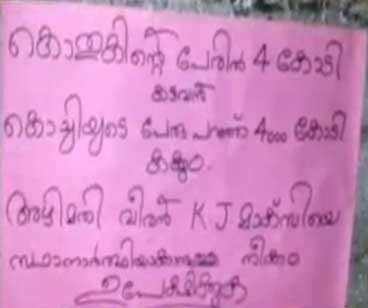 കൊതുകിന്റെ പേരിൽ 4 കോടി
കടവൻ
കൊച്ചിയുടെ പേരു പറഞ്ഞ് 4000 കോടി
കക്കും.
അഴിമതി വീരൻ K J മാക്സിയെ
സ്ഥാനാർത്ഥിയാക്കാനുള്ള നീക്കം
ഉപേക്ഷിക്കുക